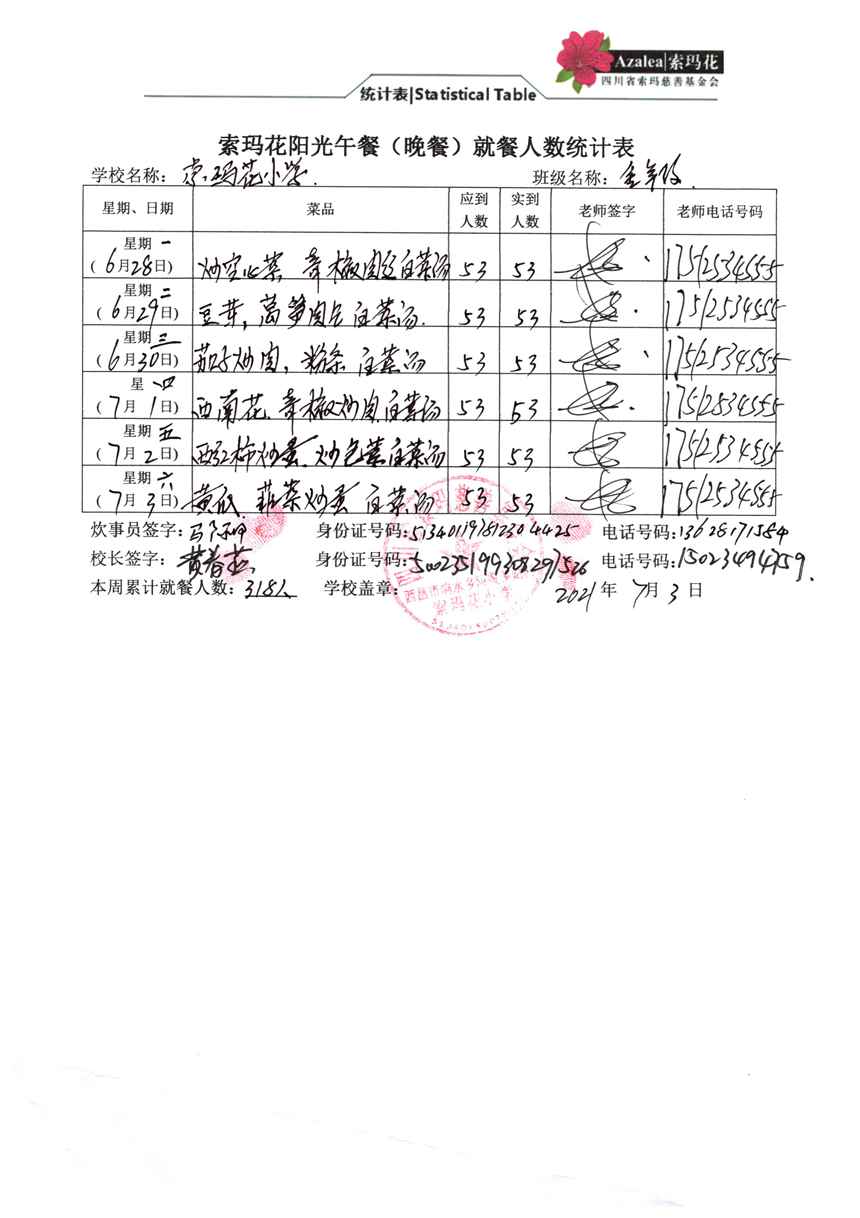 Azalea|索玛花
四川省索玛慈善基金会
统计表|Statistical Table
索玛花阳光午餐（晚餐）就餐人数统计表
学校名称： 索玛花小学. 班级名称： 全年级.
星期、日期 菜品 应到人数 实到人数 老师签字 老师电话号码
星期一（6月28日） 炒空心菜 青椒肉丝 白菜汤 53 53 17512534555
星期二（6月29日） 豆芽, 莴笋肉片 白菜汤. 53 53 17512534555
星期三（6月30日） 茄子炒肉, 粉条 白菜汤 53 53 17512534555
星四（7月1日） 西南花. 青椒炒肉. 白菜汤 53 53 17512534555
星期五（7月2日） 西红柿炒蛋. 炒包菜 白菜汤 53 53 17512534555
星期六（7月3日） 黄瓜. 韭菜炒蛋 白菜汤 53 53 17512534555
炊事员签字： 身份证号码：513401197812304425 电话号码：13628171584
校长签字： 身份证号码：500235199308297526 电话号码：15023494759.
本周累计就餐人数：318人 学校盖章： 2021年 7月 3日
索玛花小学